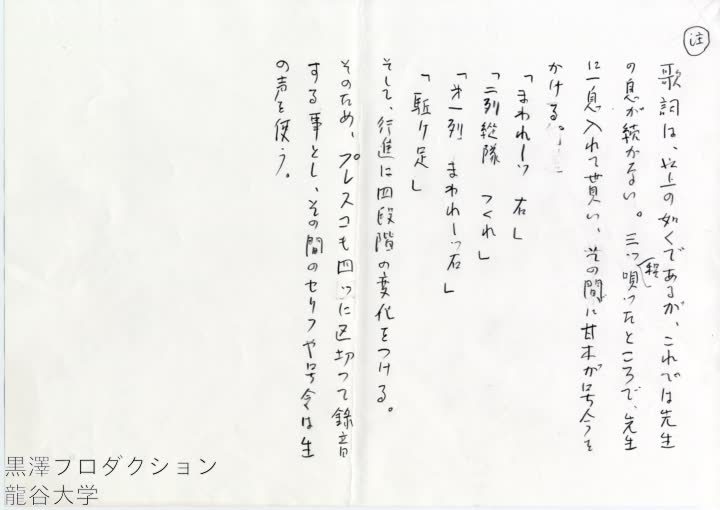 注
歌詞は、以上の如くであるが、これでは先生
の息が続かない。三ツ程唄ったところで、先生
に一息入れて貰い、その間に甘木が号令を
かける。
「まわれーッ 右」
「二列縦隊 つくれ」
「才一列 まわれーッ右」
「駈ケ足」
そして、行進に四段階の変化をつける。
そのため、プレスコも四ツに区切って録音
する事とし、その間のセリフや号令は生
の声を使う。
黒澤プロダクション
龍谷大学